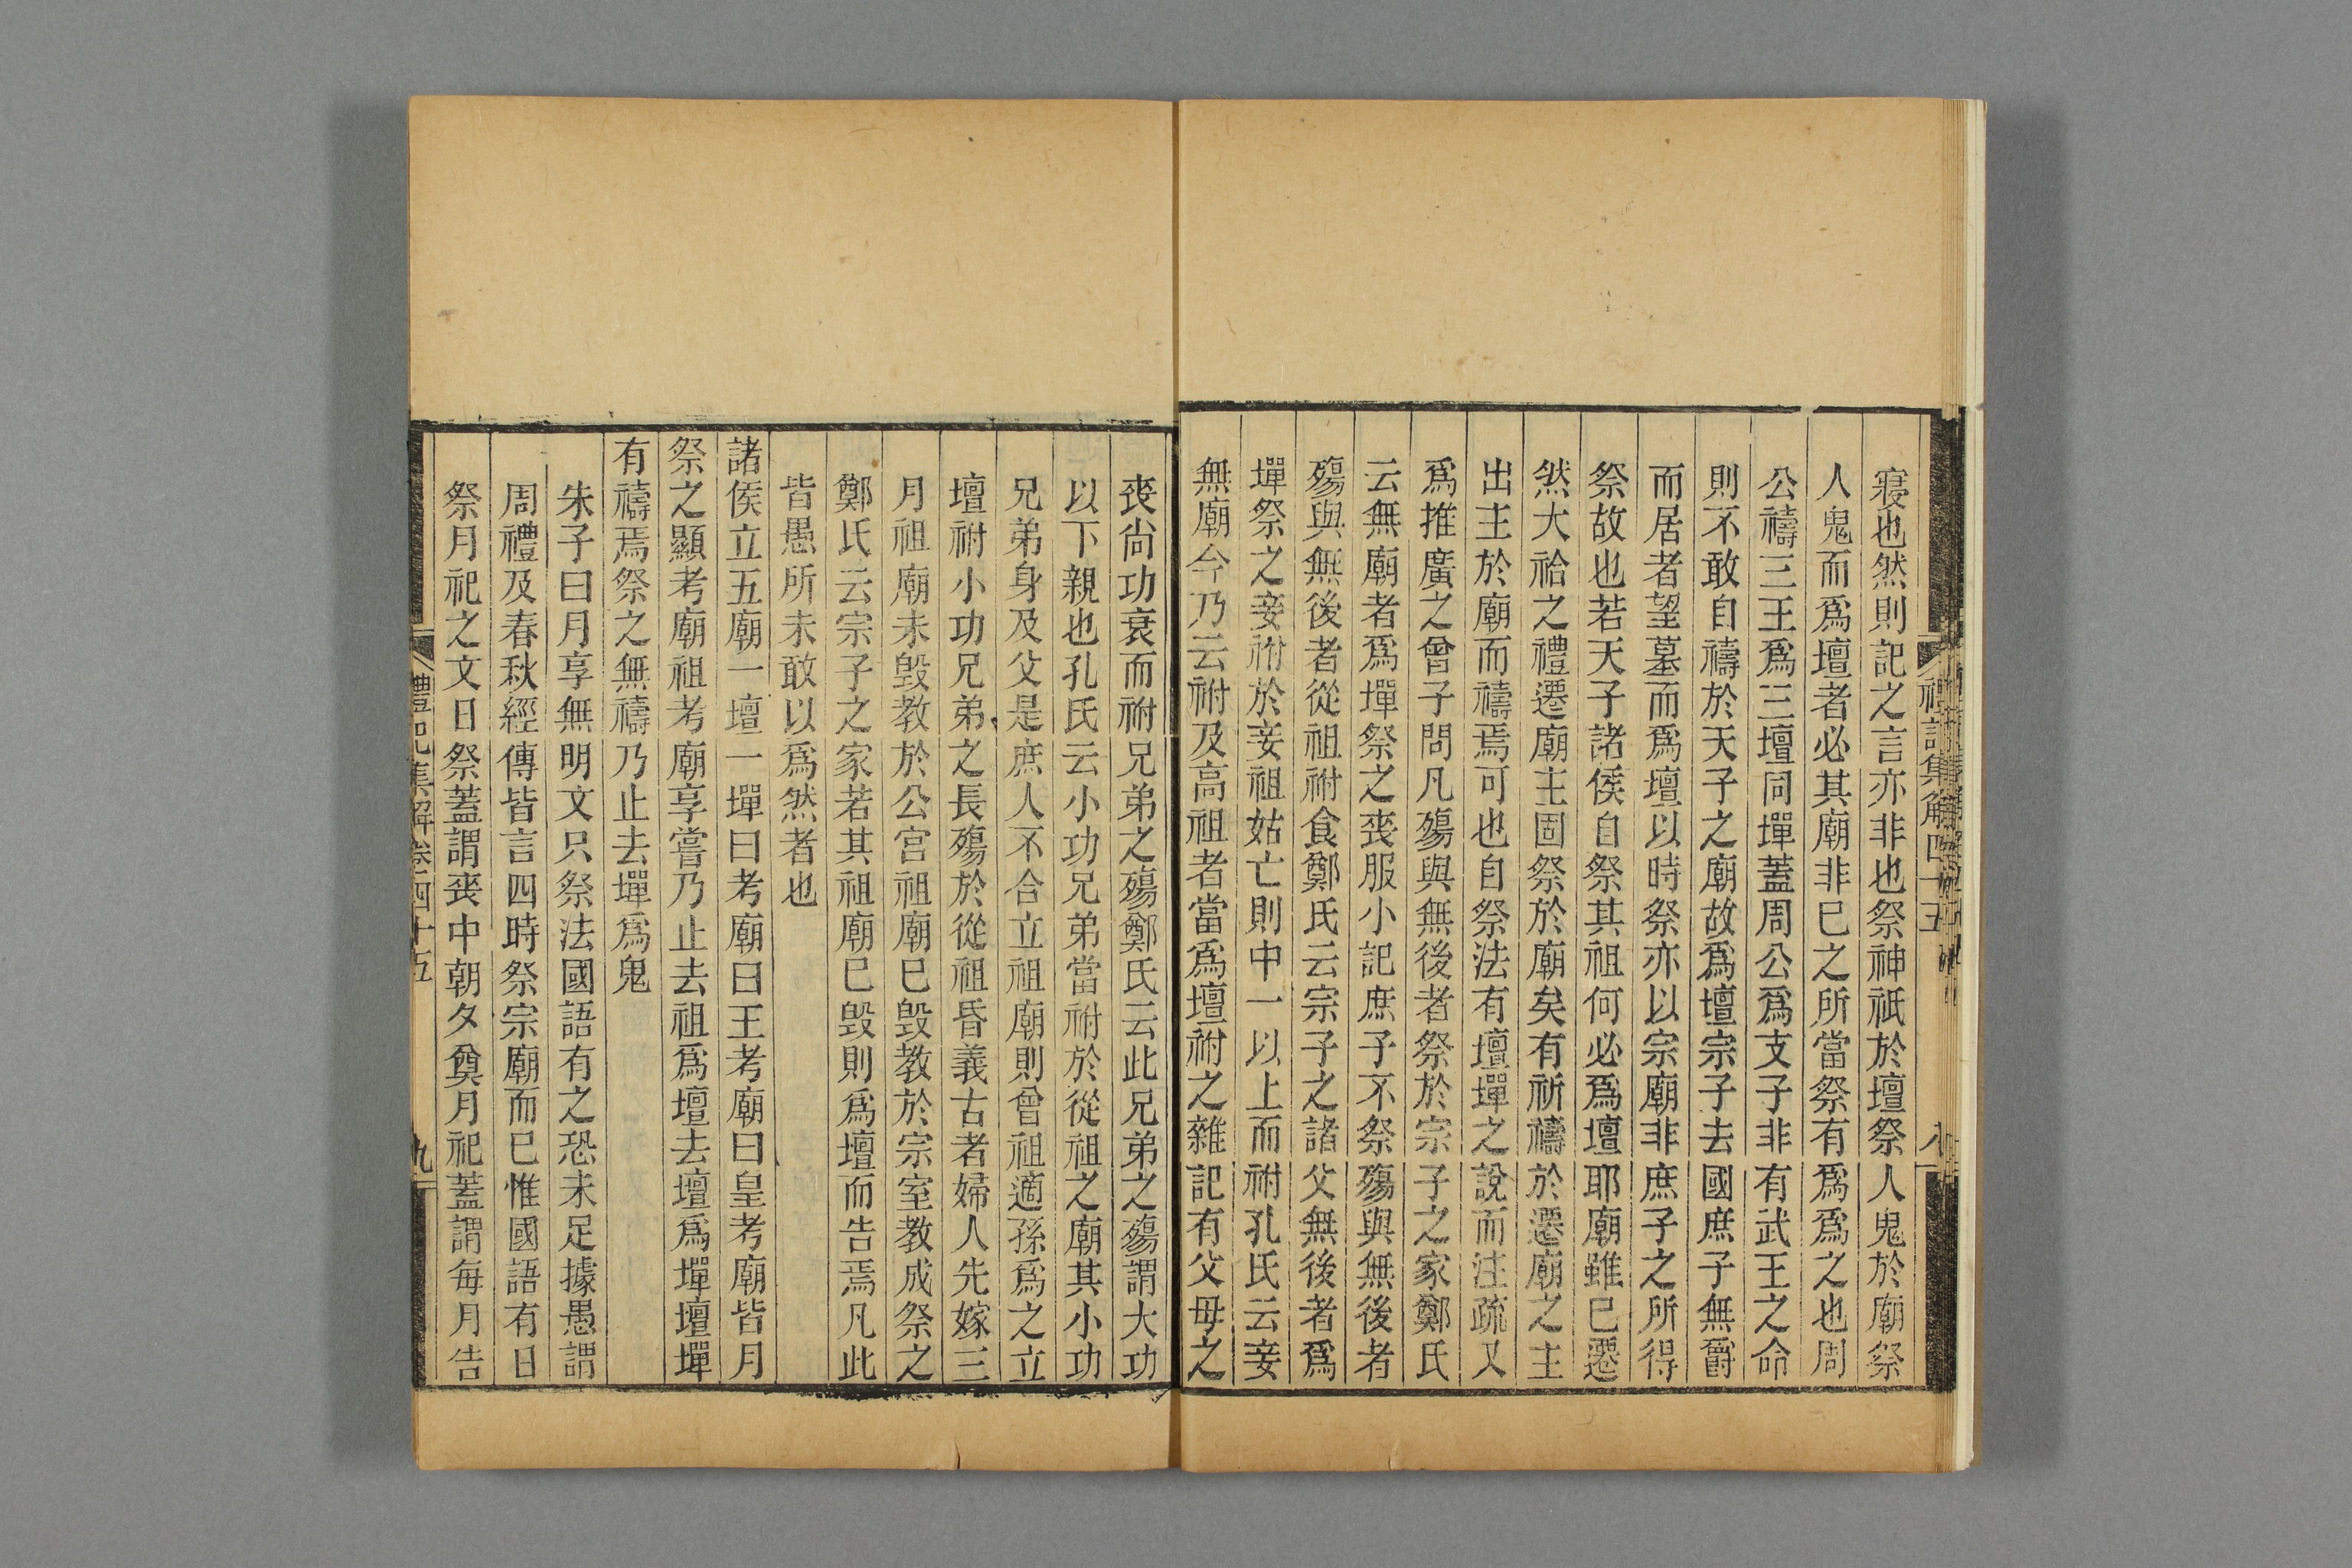 寢也然則記之言亦非也祭神祇於壇祭人鬼於廟祭
人鬼而爲壇者必其廟非已之所當祭有爲爲之也周
公禱三王爲三壇同墠蓋周公爲支子非有武王之命
則不敢自禱於天子之廟故爲壇宗子去國庶子無爵
而居者望墓而爲壇以時祭亦以宗廟非庶子之所得
祭故也若天子諸侯自祭其祖何必爲壇耶廟雖已遷
然大祫之禮遷廟主固祭於廟矣有祈禱於遷廟之主
出主於廟而禱焉可也自祭法有壇墠之說而注疏又
爲推廣之曾子問凡殤與無後者祭於宗子之家鄭氏
云無廟者爲墠祭之喪服小記庶子不祭殤與無後者
殤與無後者從祖祔食鄭氏云宗子之諸父無後者爲
墠祭之妾祔於妾祖姑亡則中一以上而祔孔氏云妾
無廟今乃云祔及高祖者當爲壇祔之雜記有父母之
喪尚功衰而祔兄弟之殤鄭氏云此兄弟之殤謂大功
以下親也孔氏云小功兄弟當祔於從祖之廟其小功
兄弟身及父是庶人不合立祖廟則曾祖適孫爲之立
壇祔小功兄弟之長殤於從祖昏義古者婦人先嫁三
月祖廟未毀教於公宮祖廟已毀教於宗室教成祭之
鄭氏云宗子之家若其祖廟已毀則爲壇而告焉凡此
皆愚所未敢以爲然者也
諸侯立五廟一壇一墠曰考廟曰王考廟曰皇考廟皆月
祭之顯考廟祖考廟享嘗乃止去祖爲壇去壇爲墠壇墠
有禱焉祭之無禱乃止去墠爲鬼
朱子曰月享無明文只祭法國語有之恐未足據愚謂
周禮及春秋經傳皆言四時祭宗廟而已惟國語有日
祭月祀之文日祭蓋謂喪中朝夕奠月祀蓋謂每月告
禮記集解卷四十五
九